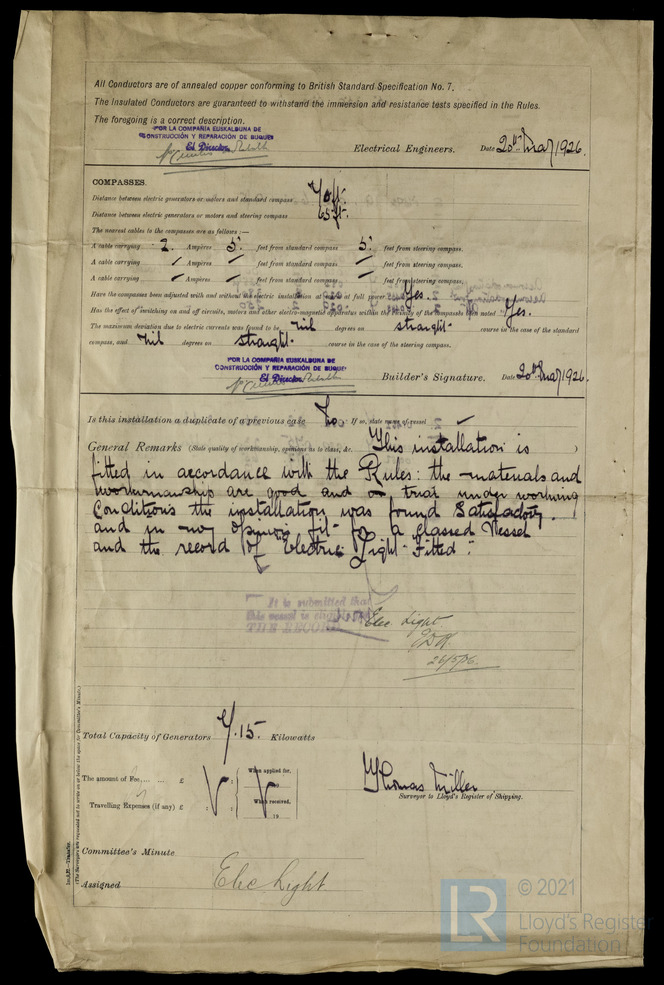 All Conductors are of annealed copper conforming to British Standard Specification No. 7.
The Insulated Conductors are guaranteed to withstand the immersion and resistance tests specified in the Rules.
The foregoing is a correct description.
POR LA COMPAÑIA EUSKALDUNA DE
CONSTRUCCIÓN Y REPARACIÓN DE BUQUES
El Director
Electrical Engineers. Date 20th May 1926.
COMPASSES.
Distance between electric generators or motors and standard compass 70 ft.
Distance between electric generators or motors and steering compass 65 ft.
The nearest cables to the compasses are as follows:—
A cable carrying 2. Ampères 5. feet from standard compass 5. feet from steering compass.
A cable carrying Ampères feet from standard compass feet from steering compass.
A cable carrying Ampères feet from standard compass feet from steering compass.
Have the compasses been adjusted with and without the electric installation at work at full power Yes.
Has the effect of switching on and off circuits, motors and other electro-magnetic apparatus within the vicinity of the compasses been noted Yes.
The maximum deviation due to electric currents was found to be nil degrees on straight course in the case of the standard
compass, and nil degrees on straight course in the case of the steering compass.
POR LA COMPAÑIA EUSKALDUNA DE
CONSTRUCCIÓN Y REPARACIÓN DE BUQUES
El Director
Builder's Signature. Date 20th May 1926.
Is this installation a duplicate of a previous case No. If so, state name of vessel
General Remarks (State quality of workmanship, opinions as to class, &c. This installation is )
fitted in accordance with the Rules: the materials and
workmanship are good and on trial under working
Conditions the installation was found Satisfactory.
and in my opinion fit for a Classed Vessel
and the record of Electric Light Fitted.
It is submitted that
this vessel is eligible for
THE RECORD Elec Light
26/5/26.
Total Capacity of Generators 7.15 Kilowatts
The amount of Fee, ... ... £ : : When applied for,
19
Travelling Expenses (if any) £ : : When received,
19
Thomas Miller
Surveyor to Lloyd's Register of Shipping.
Committee's Minute
Assigned Elec Light.
(The Surveyors are requested not to write on or below the space for Committee's Minute.)
© 2021
LR Lloyd's Register
Foundation